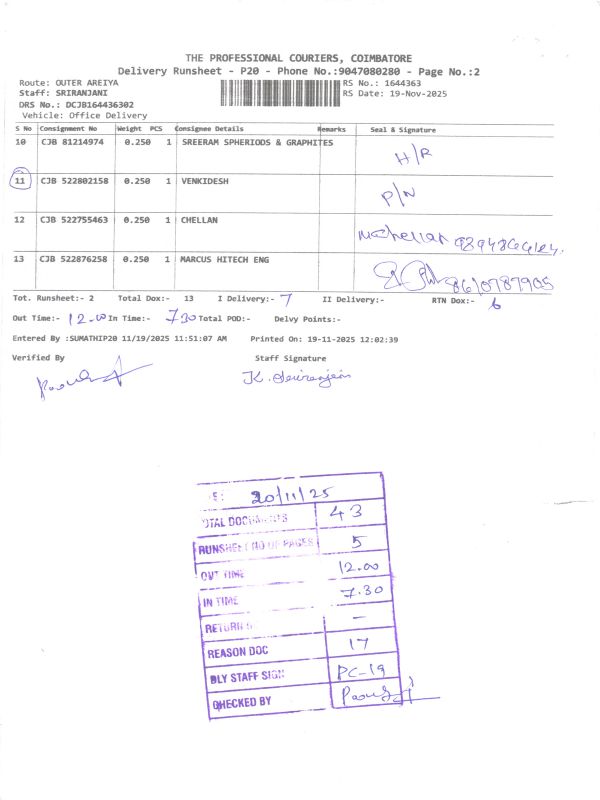 THE PROFESSIONAL COURIERS, COIMBATORE
Delivery Runsheet - P20 - Phone No.:9047080280 - Page No.:2
Route: OUTER AREIYA RS No.: 1644363
Staff: SRIRANJANI RS Date: 19-Nov-2025
DRS No.: DCJB164436302
Vehicle: Office Delivery
S No Consignment No Weight PCS Consignee Details Remarks Seal & Signature
10 CJB 81214974 0.250 1 SREERAM SPHERIODS & GRAPHITES H/R
11 CJB 522802158 0.250 1 VENKIDESH P/N
12 CJB 522755463 0.250 1 CHELLAN
13 CJB 522876258 0.250 1 MARCUS HITECH ENG 8610787905
Tot. Runsheet:- 2 Total Dox:- 13 I Delivery:- 7 II Delivery:- RTN Dox:- 6
Out Time:- 12.00 In Time:- 7.30 Total POD:- Delvy Points:-
Entered By :SUMATHIP20 11/19/2025 11:51:07 AM Printed On: 19-11-2025 12:02:39
Verified By Staff Signature
E: 20/11/25
OTAL DOCUMENTS 43
RUNSHEET NO OF PAGES 5
OUT TIME 12.00
IN TIME 7.30
RETURN -
REASON DOC 17
DLY STAFF SIGN PC-19
CHECKED BY